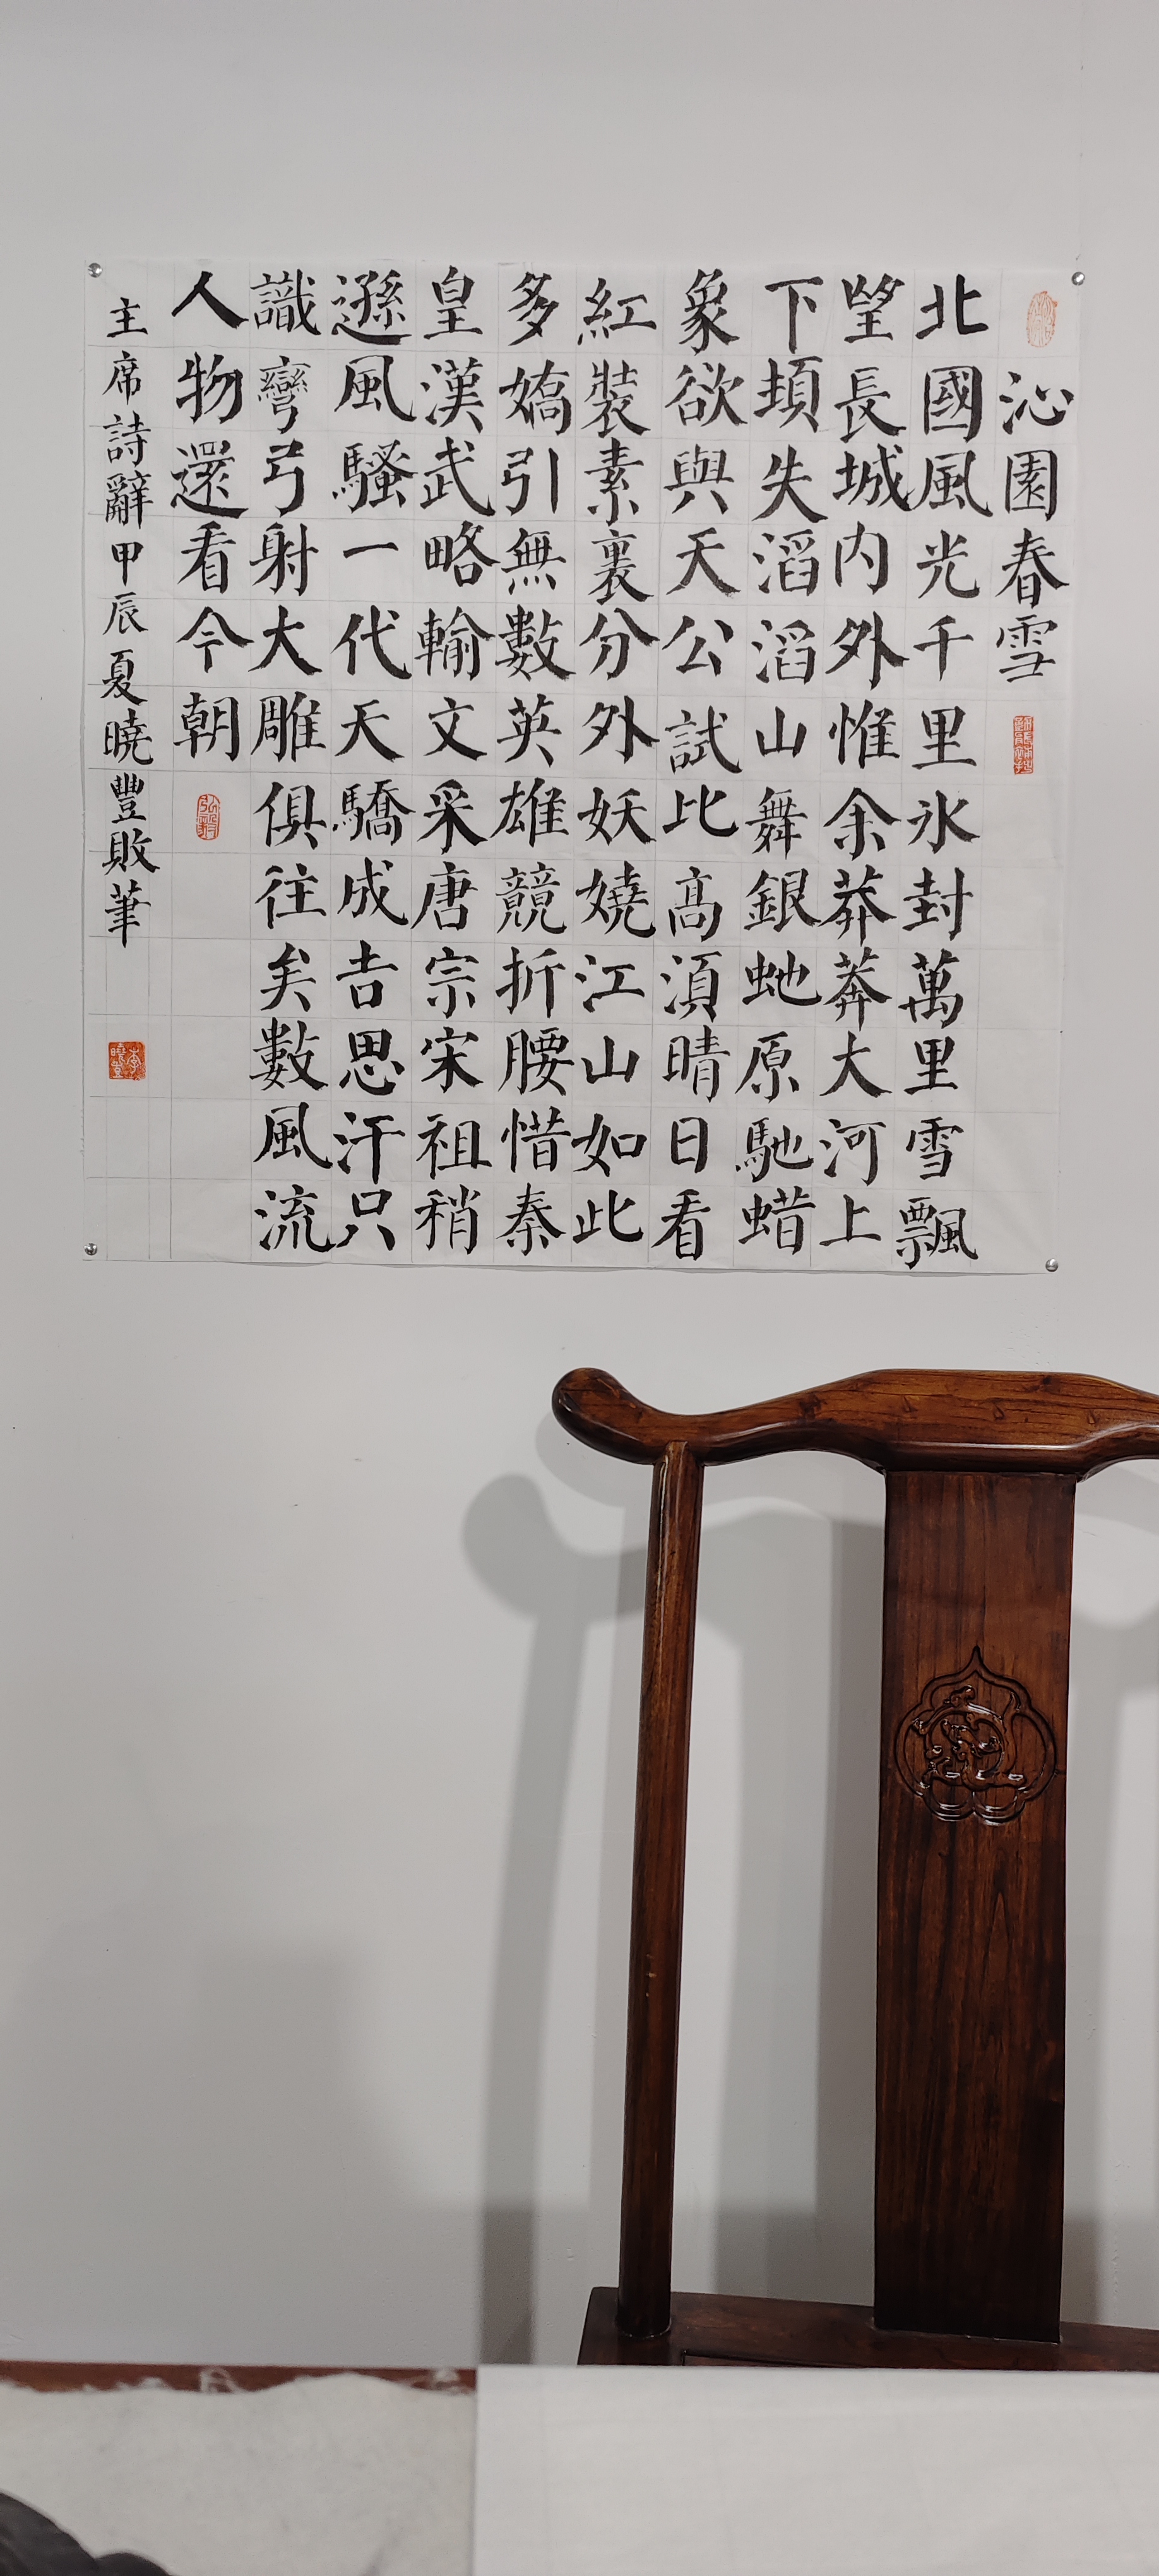 沁園春雪
北國風光千里氷封萬里雪飄
望長城内外惟余莽莽大河上
下頓失滔滔山舞銀虵原馳蜡
象欲與天公試比髙湏晴日看
紅裝素裏分外妖嬈江山如此
多嬌引無數英雄競折腰惜秦
皇漢武略輸文采唐宗宋祖稍
遜風騷一代天驕成吉思汗只
識彎弓射大雕俱往矣數風流
人物還看今朝
主席詩辭甲辰夏曉豐敗筆